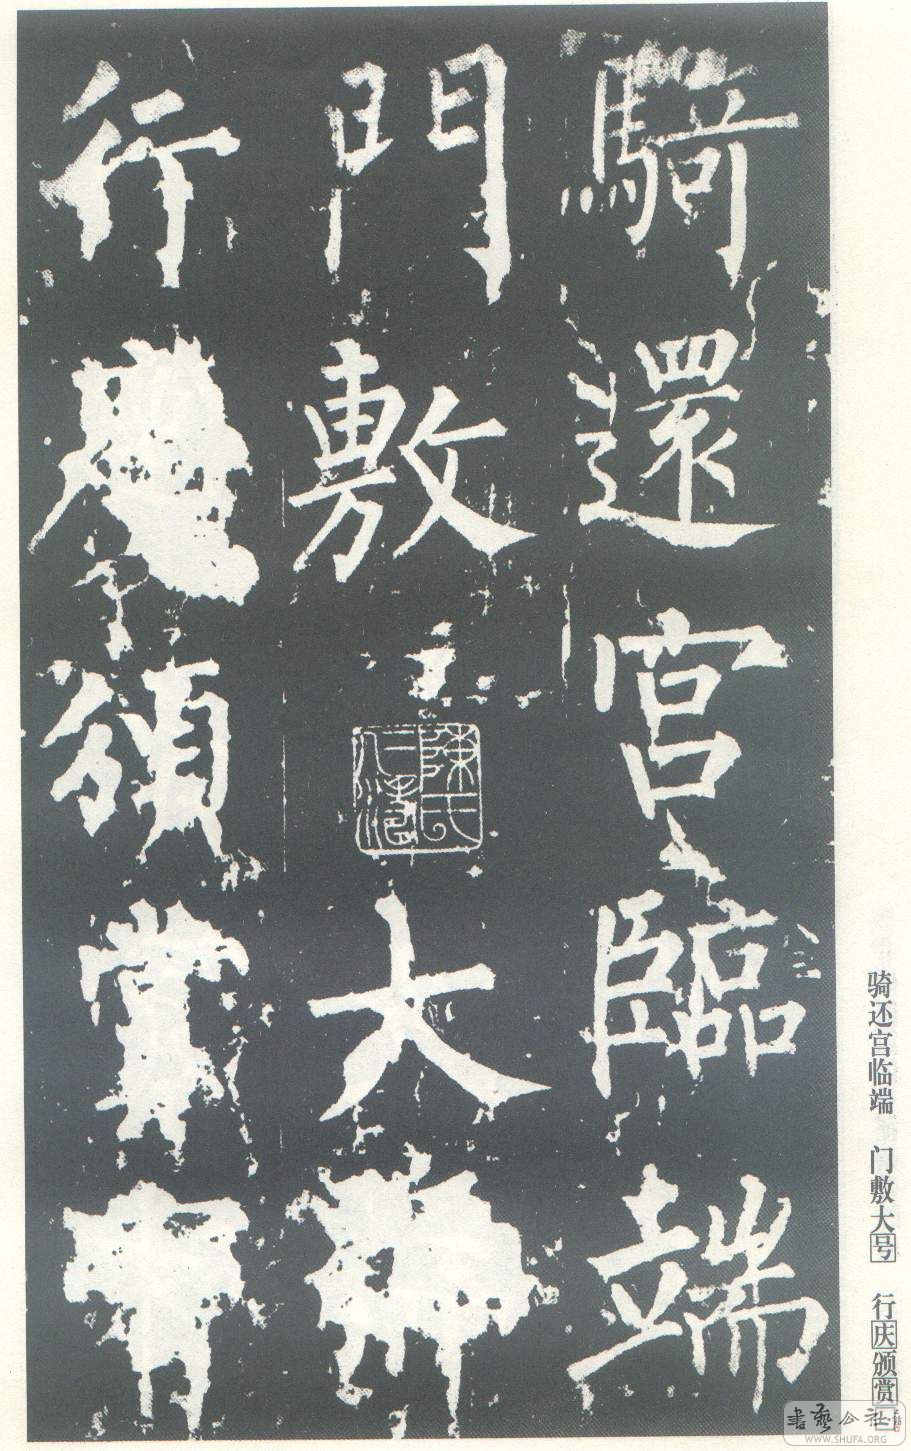 騎還宮臨端
門敷大
行頒賞
骑还宫临端 门敷大号 行庆颁赏
書藝公社
WWW.SHUFA.ORG